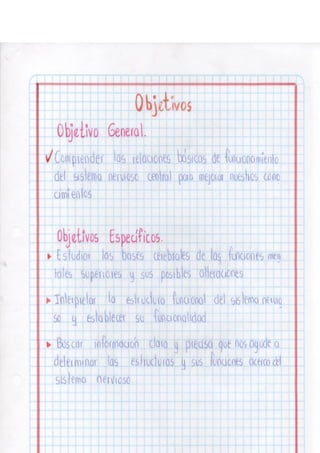 Objetivos
Objetivo General.
Comprender las relaciones básicas de funcionamiento
del sistema nervioso central para mejorar nuestros cono
cimientos
Objetivos Específicos.
Estudiar las bases cerebrales de las funciones men
tales superiores y sus posibles alteraciones
Interpretar la estructura funcional del sistema nervio
so y establecer su funcionalidad
Buscar información clara y precisa que nos ayude a
determinar las estructuras y sus funciones acerca del
sistema nervioso